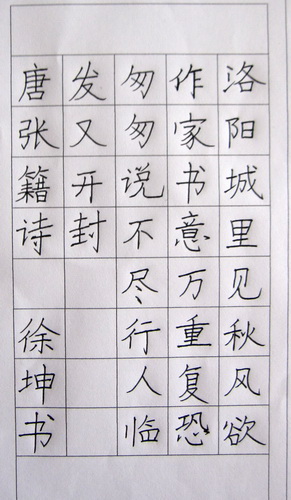 洛阳城里见秋风欲
作家书意万重复恐
匆匆说不尽行人临
发又开封
唐张籍诗 徐坤书